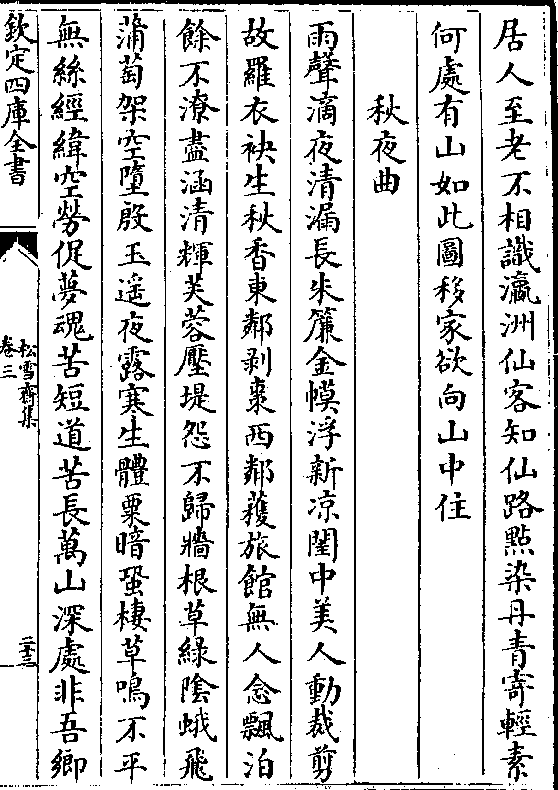 居人至老不相識瀛洲仙客知仙路㸃染丹青寄輕素
何處有山如此圖移家欲向山中住
秋夜曲
雨聲滴夜清漏長朱簾金幙浮新凉閨中美人動裁剪
故羅衣袂生秋香東鄰剥棗西鄰蒦旅館無人念飄泊
餘不潦盡涵清輝芙蓉壓堤怨不歸牆根草緑陰蛾飛
蒲萄架空墮殷玉遥夜露寒生體粟暗蛩棲草鳴不平
無絲經緯空勞促夢魂苦短道苦長萬山深處非吾鄉
欽定四庫全書
松雪齋集
卷三
二十三